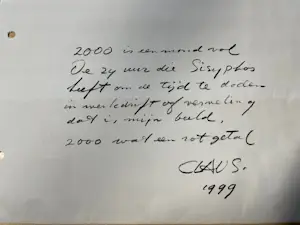 2000 is een mond vol
De zy uur die Sisyphos
heeft om de tijd te doden
in werkdrift of verveling
dat is mijn beeld,
2000 wat een rot getal
CLAUS.
1999